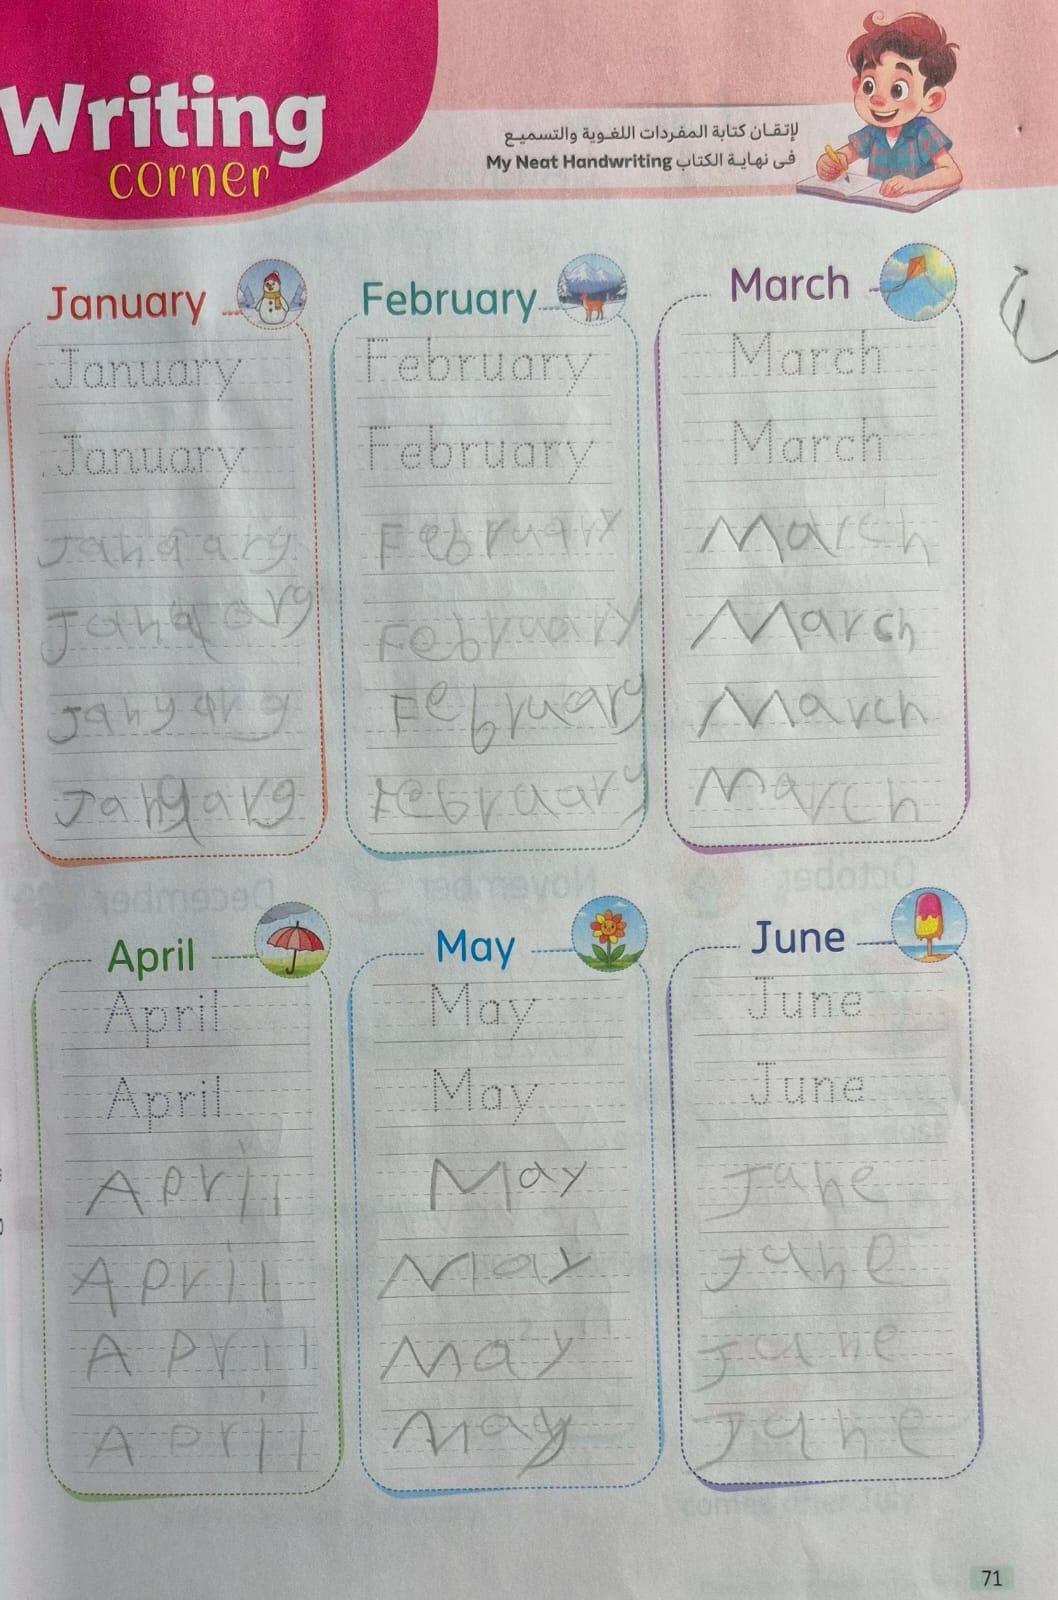 Writing
corner
لإتقان كتابة المفردات اللغوية والتسميع
فى نهاية الكتاب My Neat Handwriting
January
January
January
Janqary
Janqary
Janyary
Jangary
February
February
February
February
February
February
February
March
March
March
March
March
March
March
April
April
April
April
April
April
April
May
May
May
May
May
May
May
June
June
June
June
June
June
June
71